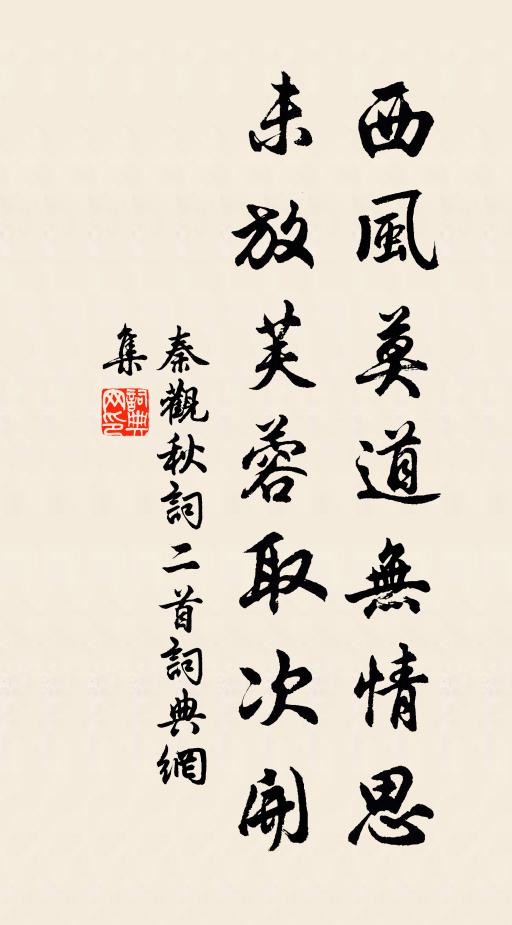 西風莫道無情思
未放芙蓉取次開
秦觀秋詞二首詞典網
集
詞典
网印